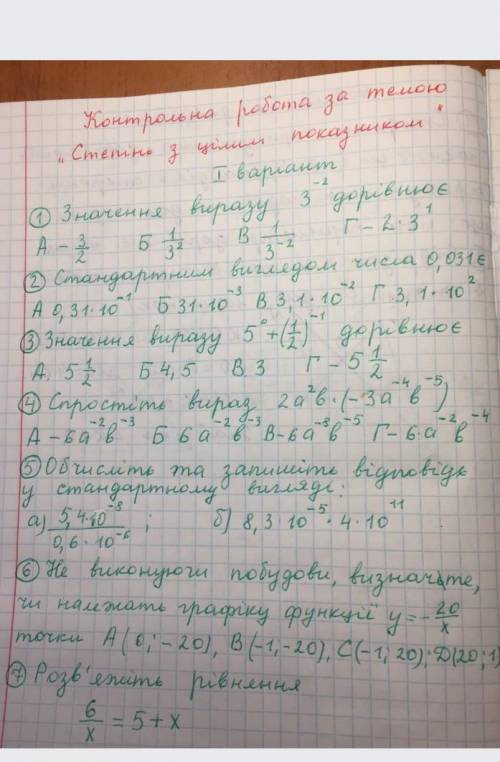 Контрольна робота за темою
"Степінь з цілим показником"
I варіант
① Значення виразу 3⁻² дорівнює
А -3/2 Б 1/3² В 1/3⁻² Г -2·3¹
② Стандартним виглядом числа 0,031 є
А 0,31·10⁻¹ Б 31·10⁻³ В 3,1·10⁻² Г 3,1·10²
③ Значення виразу 5⁰+(1/2)⁻¹ дорівнює
А. 5 1/2 Б 4,5 В 3 Г -5 1/2
④ Спростіть вираз 2a²b·(-3a⁻⁴b⁻⁵)
А -6a⁻²b⁻³ Б 6a⁻²b⁻³ В -6a⁻⁸b⁻⁵ Г -6·a⁻²b⁻⁴
⑤ Обчисліть та запишіть відповідь
у стандартному вигляді:
а) 5,4·10⁻⁸/0,6·10⁻⁶ ; б) 8,3·10⁻⁵·4·10¹¹.
⑥ Не виконуючи побудови, визначьте,
чи належать графіку функції y=-20/x
точки А(0;-20), В(-1;-20), С(-1;20); Д(20;1)
⑦ Розв'яжіть рівняння
6/x = 5+x